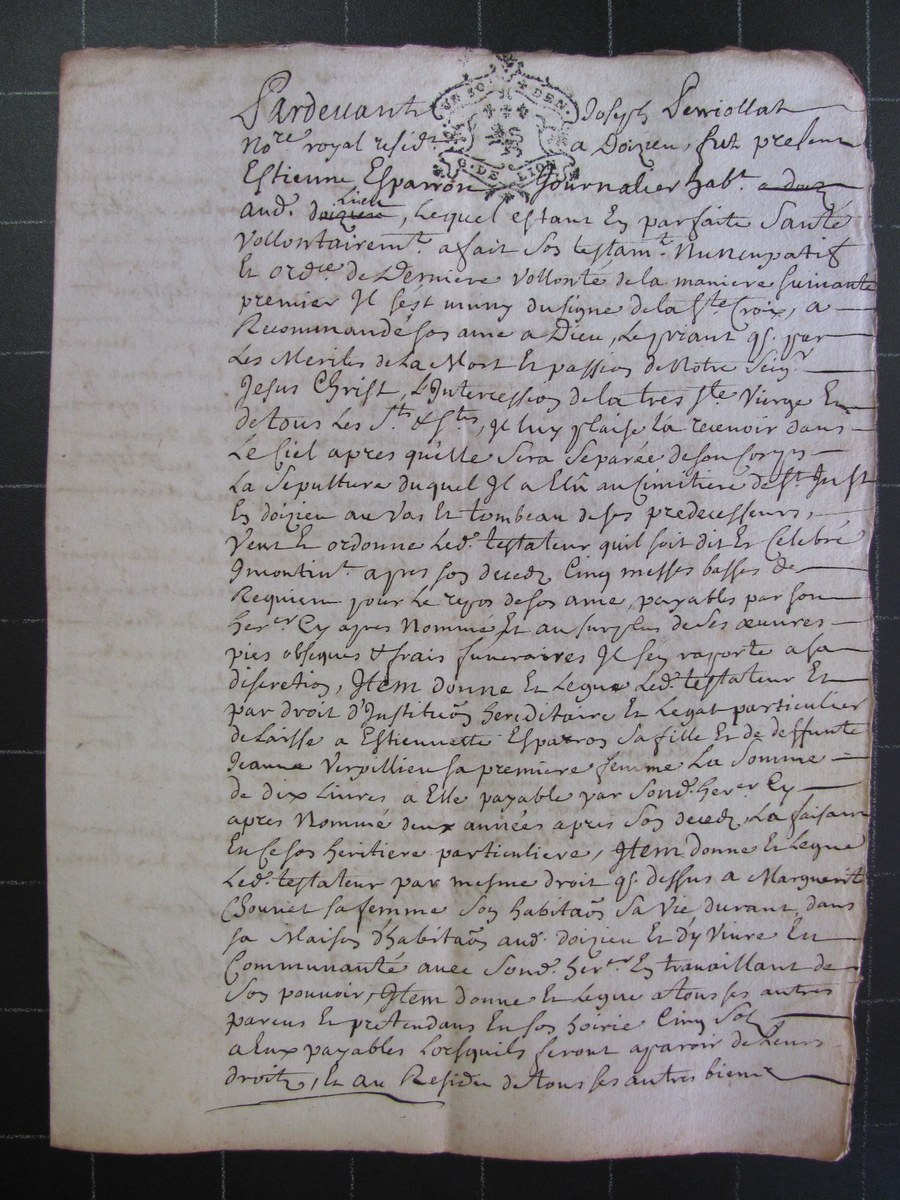 Pardevant Joseph Perriollat
UN SO. DEN.
G. DE LION
No.re royal resid.t a Doizieu, fut present
Estienne Esparron Journalier hab.t a doiz
Lieu
aud. doizieu, Lequel estant En parfaite Santé
Vollontairem.t a fait son testam.t Nuncupatif
Et ord.re de Derniere vollonté de la maniere suivante
premier Il s'est muny du signe de la S.te Croix, a
Recommandé son ame a Dieu, Le priant q. par
Les Merites de La Mort Et passion de Notre Seig.r
Jesus Christ, L'Intercession de la tres S.te Vierge Et
de tous Les S.ts & S.tes, Il luy plaise la recevoir dans
Le Ciel apres qu'elle sera separée de son Corps
La Sepulture duquel Il a Elû au Cimitiere de S.t Just
En doizieu au Vas Et tombeau de ses predecesseurs,
Veut Et ordonne Led. testateur quil soit dit Et Celebré
Imontint.t apres son decedz Cinq messes basses de
Requiem pour Le repos de son ame, payables par son
her.er Cy apres Nommé Et au surplus de ses œuvres
pies obseques & frais funeraires Il s'en raporte a sa
discretion, Item donne Et Legue Led. testateur Et
par droit d'Institu͠on hereditaire Et Legat particulier
delaisse a Estiennette Esparron sa fille Et de deffunte
Jeanne Verpillieu sa premiere femme La Somme
de dix Livres a Elle payable par sond. her.er Cy
apres Nommé deux années apres son decedz, La faisant
En Ce son heritiere particuliere, Item donne Et Legue
Led. testateur par mesme droit q. dessus a Marguerite
Chouvet sa femme son habita͠on sa Vie durant, dans
sa Maison d'habita͠on aud. doizieu Et d'y Vivre En
Communauté avec sond. her.er En travaillant de
son pouvoir, Item donne Et Legue a tous ses autres
parens Et pretendans En son hoirie Cinq Sols
a Eux payables Lorsquils feront aparoir de Leurs
droitz, Et au Residu de tous ses autres biens